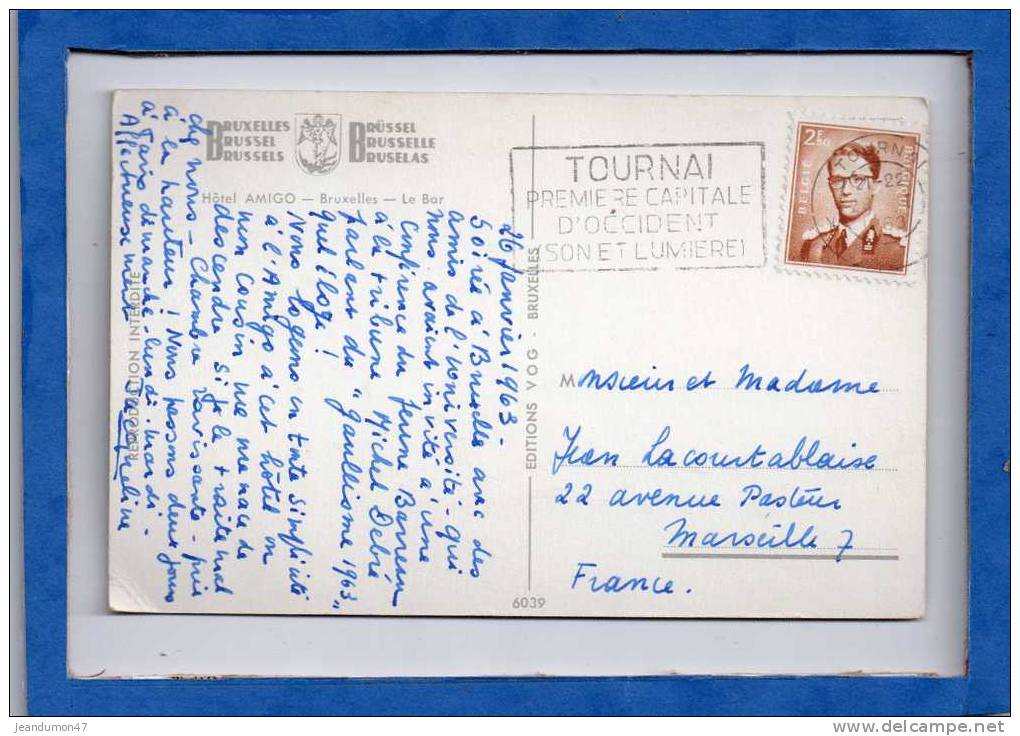 BRUXELLES
BRUSSEL
BRUSSELS
BRÜSSEL
BRUSSELLE
BRUSELAS
Hôtel AMIGO — Bruxelles — Le Bar
26 Janvier 1963 -
Soirée à Bruxelles avec des
amis de l'université - qui
nous avaient invité à une
Conférence du Jeune Barreau
à la tribune, Michel Debré
parlant du "Gaullisme 1963"
quel éloge !
Nous logeons en toute simplicité
à l'Amigo à cet hôtel on
mon cousin me menace de
descendre si je le traite mal
chez nous - Chambre ravissante - prix
à la hauteur ! Nous passons deux jours
à Paris dimanche - lundi - mardi -
Affectueusement Jacqueline
REPRODUCTION INTERDITE
EDITIONS VOG - BRUXELLES
6039
TOURNAI
PREMIERE CAPITALE
D'OCCIDENT
SON ET LUMIERE!
2F50
BELGIE
BELGIQUE
TOURN
21-22
Monsieur et Madame
Jean Lacourtablaise
22 avenue Pasteur
Marseille 7
France.
jeandumon47
http://www.delcampe.net